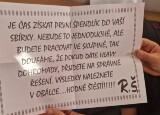 JE ČAS ZÍSKAT PRVNÍ ŠPENDLÍK DO VAŠÍ
SBÍRKY. NEBUDE TO JEDNODUCHÉ, ALE
BUDETE PRACOVAT VE SKUPINĚ, TAK
DOUFÁME, ŽE POKUD DÁTE HLAVY
DOHROMADY, PŘIJDETE NA SPRÁVNÉ
ŘEŠENÍ. VÝSLEDKY NALEZNETE
V OBÁLCE...HODNĚ ŠTĚSTÍ!!!!